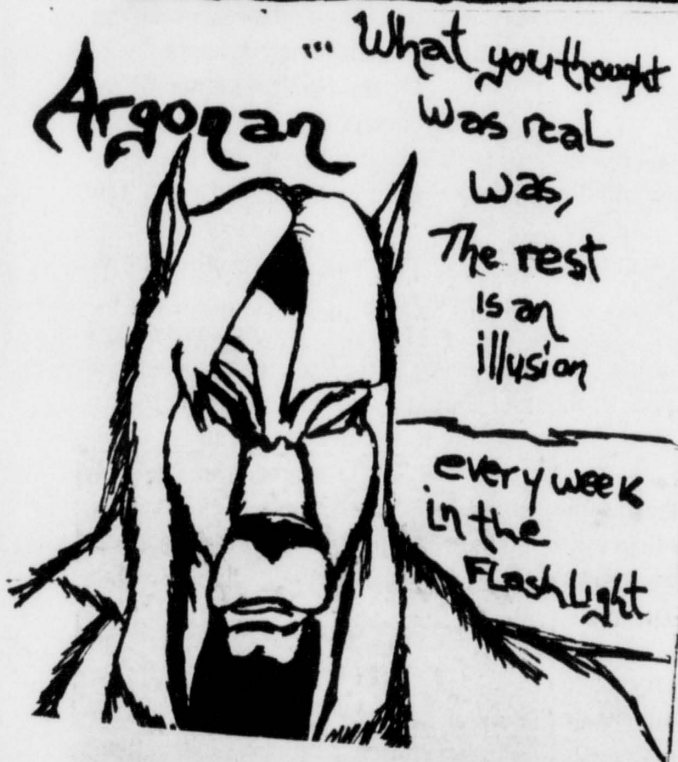 Argonan
... What you thought
was real
was,
The rest
is an
illusion
every week
in the
FLashLight